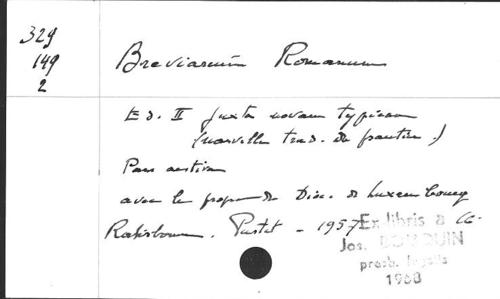 329
149
2
Breviarium Romanum
Ed. II juxta novam typicam
(nouvelle trad. du psautier.)
Pars aestiva
avec le propre du Dioc. de Luxembourg
Ratisbonne. Pustet - 1957
Ex-libris a
Jos. BOUQUIN
presb.
1968